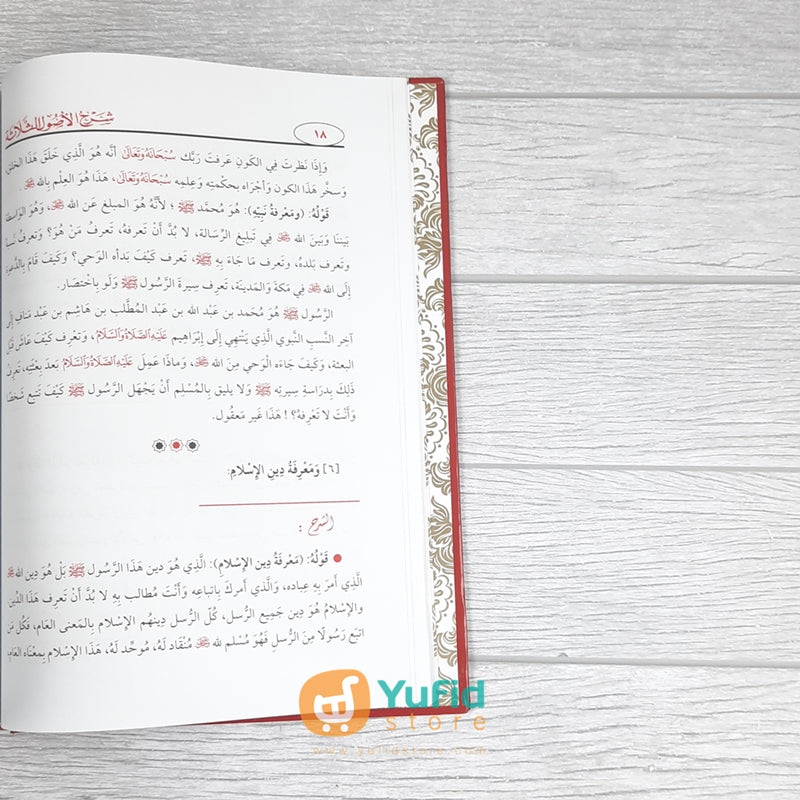 شرح الأصول الثلاثة
١٨
وَإِذَا نَظرتَ فِي الكَونِ عَرفتَ رَبَّك سُبْحَانَهُ وَتَعَالَى أنَّه هُوَ الَّذِي خَلَقَ هَذَا الخلق
وَسخَّر هَذَا الكون وَأجْرَاه بحكمتِه وَعِلمِه سُبْحَانَهُ وَتَعَالَى، هَذَا هُوَ العِلْم بِالله ﷻ.
قَوْلُهُ: (وَمَعْرِفَةُ نَبِيِّهِ): هُوَ مُحمَّد ﷺ؛ لأنَّهُ هُوَ المبلغ عَن الله ﷻ، وَهُوَ الوَاسطة
بَيننَا وَبَينَ الله ﷻ فِي تَبليغِ الرِّسَالة، لا بُدَّ أَنْ تَعرفهُ، تَعرفُ مَنْ هُوَ؟ وَتعرفُ نَسبهُ
وتَعرف بَلدهُ، وتَعرف مَا جَاءَ بِهِ ﷺ، تَعرف كَيْفَ بَدأه الوَحي؟ وَكَيفَ قَامَ بِالدَّعوة
إِلَى الله ﷻ فِي مَكةَ وَالمدينَة، تَعرف سِيرةَ الرَّسُول ﷺ وَلو بِاخْتصَار.
الرَّسول ﷺ هُوَ مُحَمد بن عَبد الله بن عَبد المُطَّلب بن هَاشِم بن عَبد مَنافٍ إِلَى
آخِر النَّسبِ النَّبوي الَّذِي يَنتهِي إِلَى إِبْرَاهِيم عَلَيْهِ الصَّلَاةُ وَالسَّلَامُ، وَتعْرف كَيْفَ عَاشَ قَبْلَ
البعثة، وَكَيفَ جَاءَه الوَحي مِنَ الله ﷻ، وَمَاذَا عَمِلَ عَلَيْهِ الصَّلَاةُ وَالسَّلَامُ بَعدَ بِعْثَتِه، تَعرفُ
ذَلِكَ بِدِرَاسةِ سِيرتِهِ ﷺ وَلا يَلِيق بِالمُسْلِم أَنْ يَجْهَل الرَّسولَ ﷺ كَيْفَ تَتبع شَخصًا
وَأَنْتَ لا تَعرِفهُ؟! هَذَا غَير مَعقُول.
[٦] وَمَعْرِفَةُ دِينِ الإِسْلامِ:
الشرح:
● قَوْلُهُ: (مَعْرِفَةُ دِينِ الإِسْلَامِ): الَّذِي هُوَ دِين هَذَا الرَّسُول ﷺ بَلْ هُوَ دِين الله ﷻ
الَّذِي أَمرَ بِهِ عِباده، وَالَّذِي أَمركَ بِاتباعِه وَأَنْتَ مُطالب بِهِ لا بُدَّ أَنْ تَعرف هَذَا الدِّين
والإِسْلامُ هُوَ دِين جَميع الرسل، كُلّ الرُّسل دِينهُم الإِسْلام بِالمَعنى العَام، فَكُلّ مَن
اتبَع رَسُولًا مِنَ الرُّسلِ فَهُوَ مُسْلم لله ﷻ مُنْقَاد لَهُ، مُوحِّد لَهُ، هَذَا الإِسْلام بِمعْنَاه العَام،
Yufid
store
www.yufidstore.com